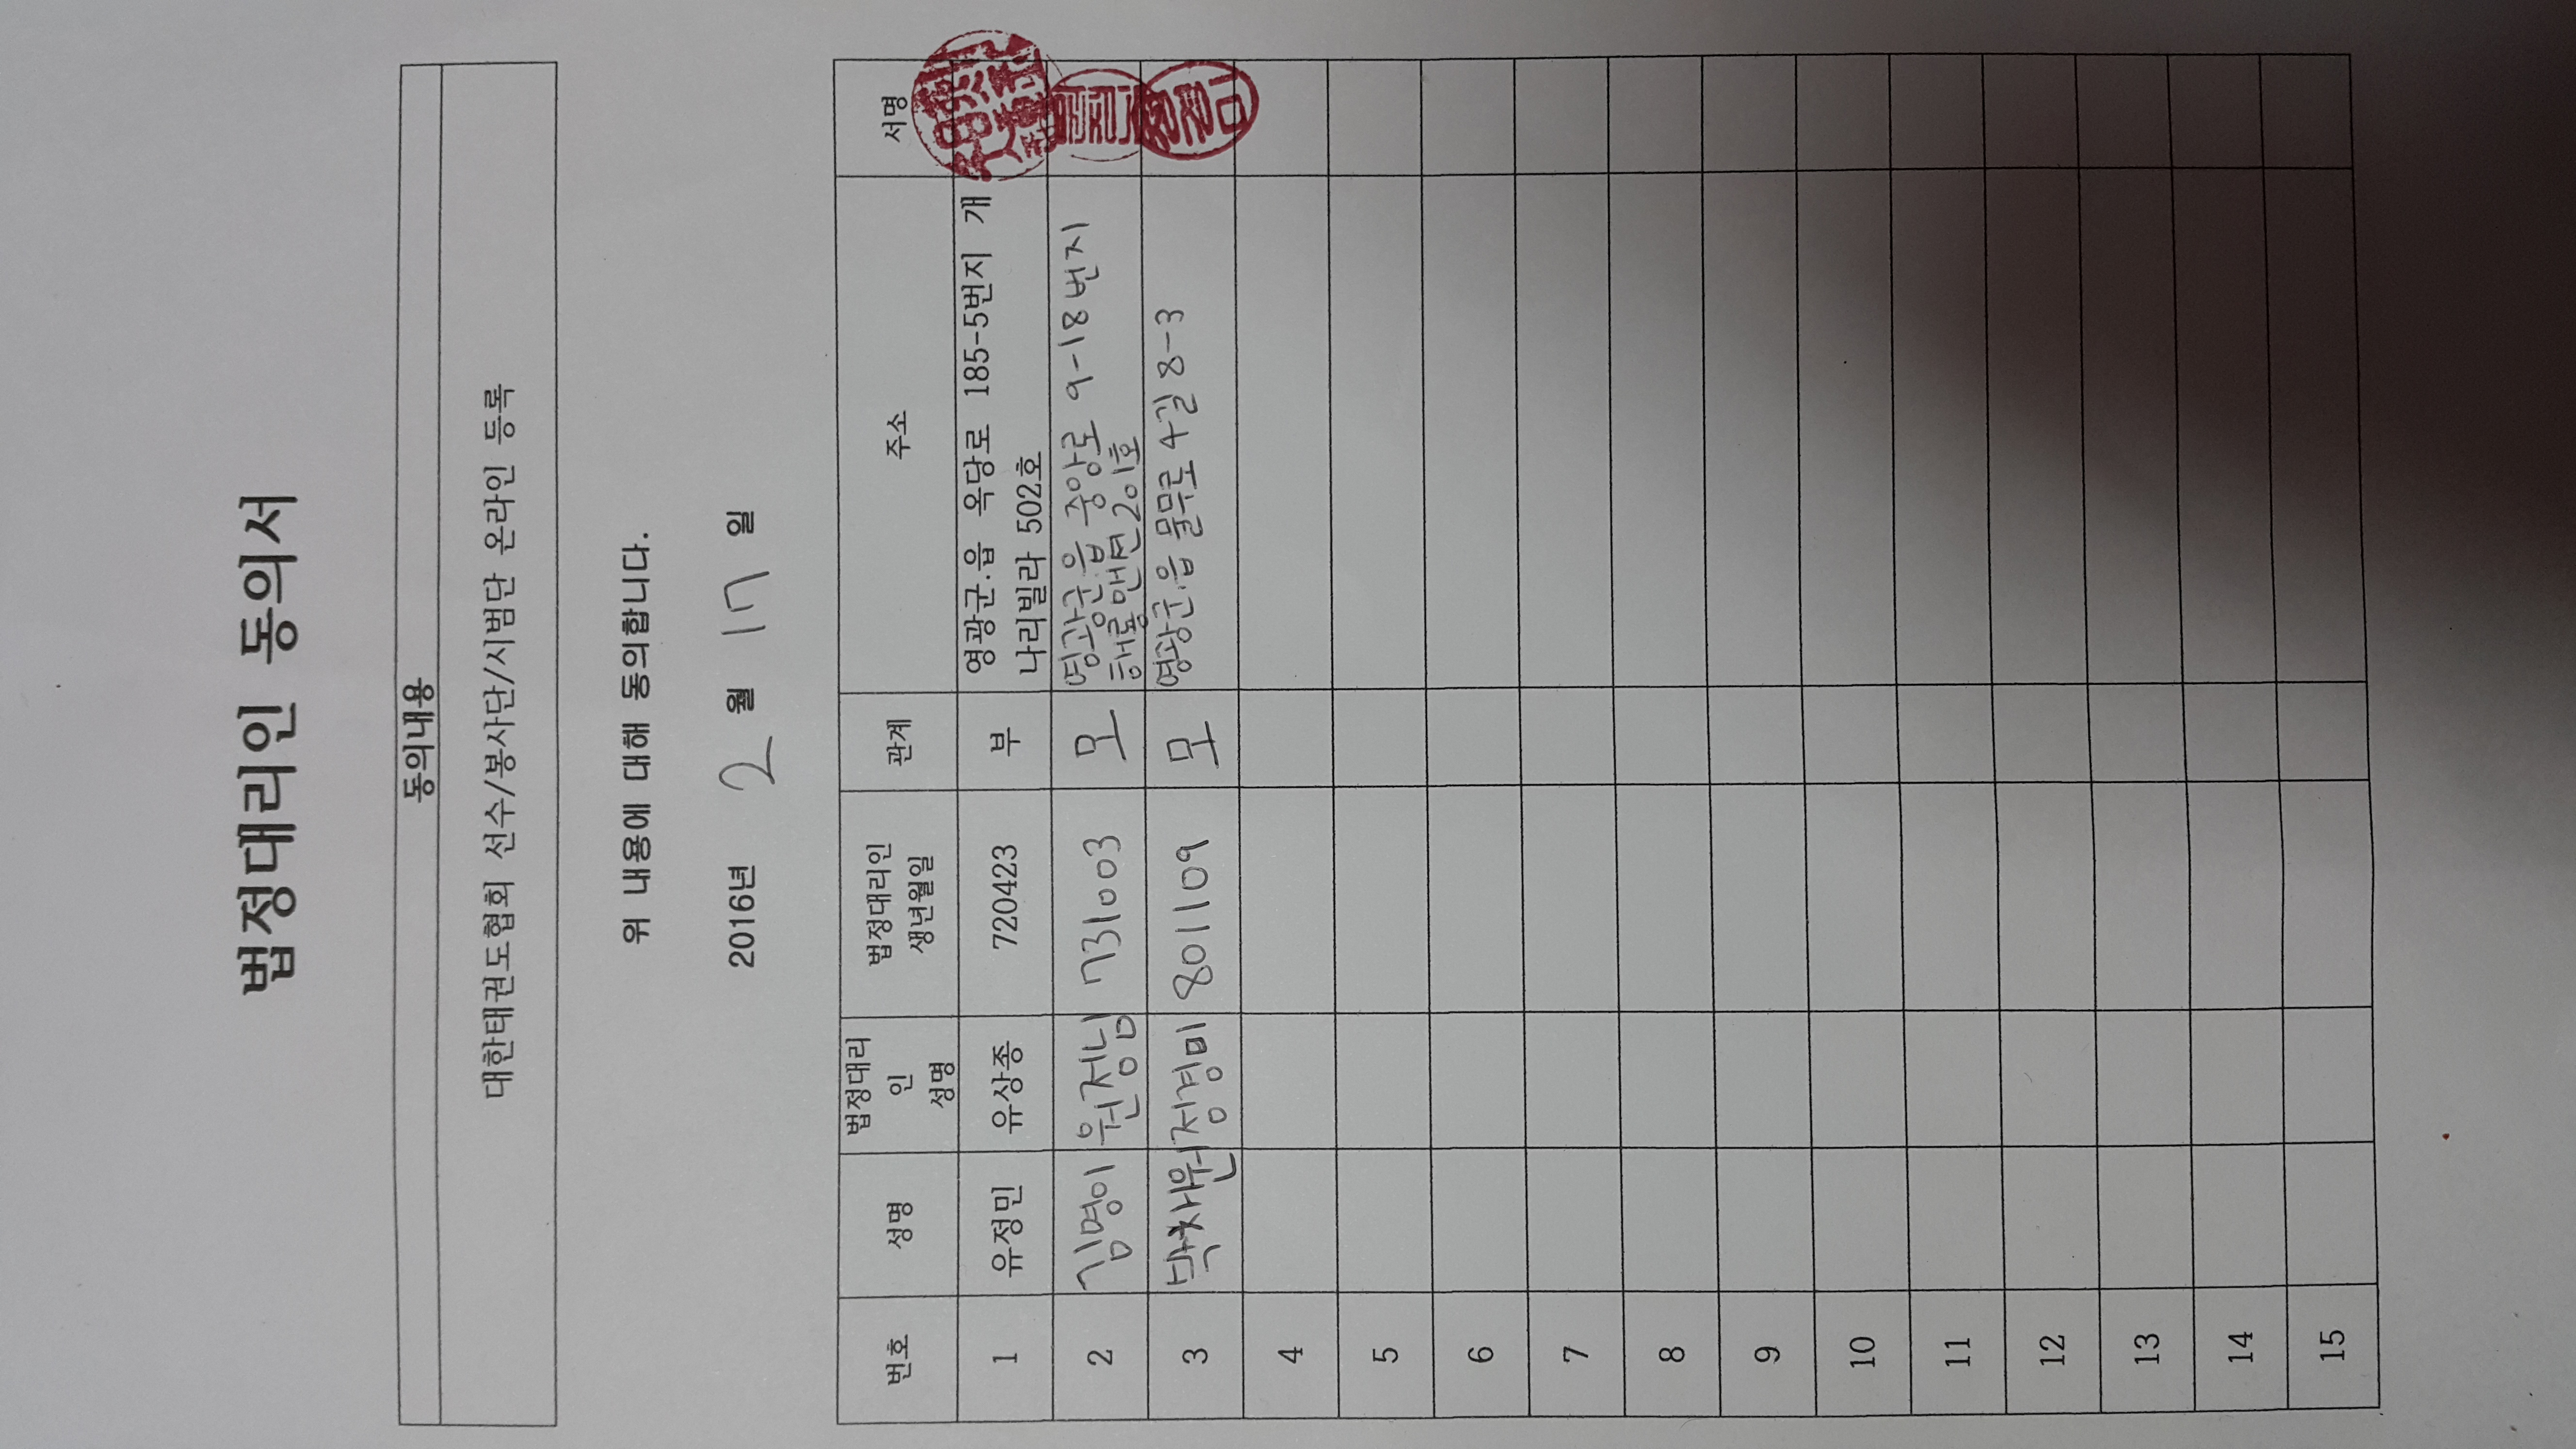 법정대리인 동의서
동의내용
대한태권도협회 선수/봉사단/시범단 온라인 등록
위 내용에 대해 동의합니다.
2016년 2 월 17 일
번호 성명 법정대리인 성명 법정대리인 생년월일 관계 주소 서명
1 유정민 유상종 720423 부 영광군.읍 옥당로 185-5번지 개
나리빌라 502호
2 김명이 원정님 731003 모 영광군.읍 중앙로 9-18번지
해룡맨션 201호
3 박차원 정경미 801109 모 영광군.읍 물무로4길 8-3
4
5
6
7
8
9
10
11
12
13
14
15